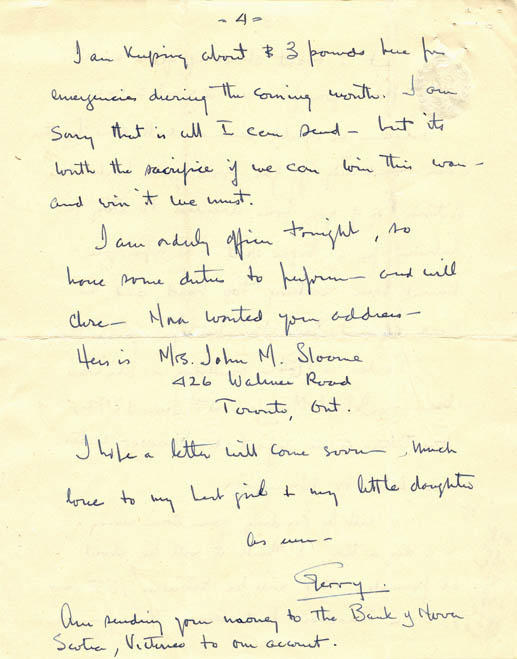 - 4 -
I am keeping about $ 3 pounds here for
emergencies during the coming month. I am
sorry that is all I can send - but its
worth the sacrifice if we can win this war -
and win it we must.
I am orderly officer tonight, so
have some duties to perform - and will
close - Nora wanted your address -
Hers is Mrs. John M. Sloane
426 Walmer Road
Toronto, Ont.
I hope a letter will come soon - Much
love to my best girl & my little daughter
as ever -
Gerry.
Am sending your money to the Bank of Nova
Scotia, Victoria to our account.